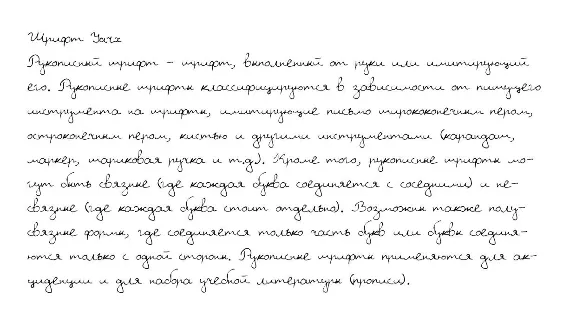 Шрифт Уачх
Рукописный шрифт – шрифт, выполненный от руки или имитирующий
его. Рукописные шрифты классифицируются в зависимости от пишущего
инструмента на шрифты, имитирующие письмо ширококонечным пером,
остроконечным пером, кистью и другими инструментами (карандаш,
маркер, шариковая ручка и т.д.). Кроме того, рукописные шрифты мо-
гут быть связные (где каждая буква соединяется с соседними) и не-
связные (где каждая буква стоит отдельно). Возможны также полу-
связные формы, где соединяется только часть букв или буквы соединя-
ются только с одной стороны. Рукописные шрифты применяются для ак-
циденции и для набора учебной литературы (прописи).